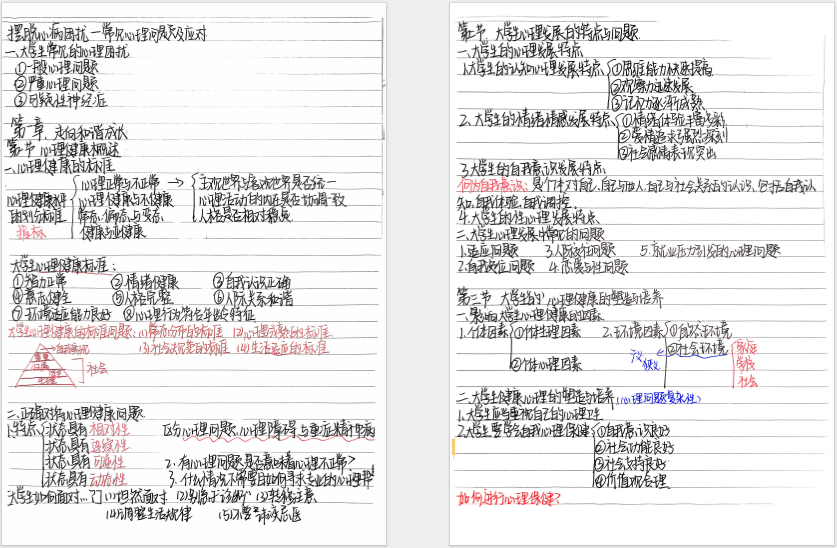 摆脱心病困扰—常见心理问题及应对
一、大学生常见的心理困扰
①一般心理问题
②严重心理问题
③可疑性神经症
第一章、走向和谐成长
第一节 心理健康概述
一、心理健康的标准
心理健康
划分标准
指标
心理正常与不正常 → 主观世界与客观世界是否统一
心理健康与不健康 心理活动的内在是否协调一致
常态、偏态与变态 人格是否相对稳点
健康与亚健康
大学生心理健康标准:
①智力正常 ②情绪健康 ③自我认识正确
④意志健全 ⑤人格完整 ⑥人际关系和谐
⑦环境适应能力良好 ⑧心理行为符合年龄特征
大学生心理健康的标准问题:(1)常态分布的标准 (2)心理成熟的标准
(3)社会规范的标准 (4)生活适应的标准
自我实现
尊重
归属
安全
生理
社会
二、正确对待心理健康问题
1.特点 状态具有相对性 区分心理问题、心理障碍与重症精神病
状态具有连续性
状态具有可逆性 2.有心理问题是否意味着心理不正常?
状态具有动态性 3.什么情况下需要
大学生如何面对…? (1)坦然面对 (2) (3)转移注意
(4)调整生活规律 (5)不要
第二节、大学生心理发展的特点与问题
一、大学生的心理发展特点
1.大学生的认知心理发展特点 ①思维能力快速提高
②观察力迅速发展
③记忆力逐渐成熟
2.大学生的情绪情感发展特点 ①情绪体验丰富多彩
②爱情追求强烈
③社会
3.大学生的自我意识发展特点
何为自我意识:是个体对自己、自己与他人、自己与社会关系的认识,包括自我认
知、自我体验、自我调控
4.大学生的性心理发展特点
二、大学生心理发展中常见的问题
1.适应问题 3.人际交往问题 5.就业压力引发的心理问题
2.自我定位问题 4.恋爱与性问题
第三节 大学生的心理健康的塑造与培养
一、影响大学生心理健康的因素
1.个体因素 ①个体生理因素 2.环境因素 ①自然环境
②社会环境
广义
狭义
②个体心理因素
家庭
学校
社会
二、大学生健康心理的塑造与培养(心理问题复杂性)
1.大学生应当重视自己的心理卫生
2.大学生要学会自我心理保健 ①自我意识良好
②社会功能良好
③社会支持良好
④价值观合理
如何进行心理保健?